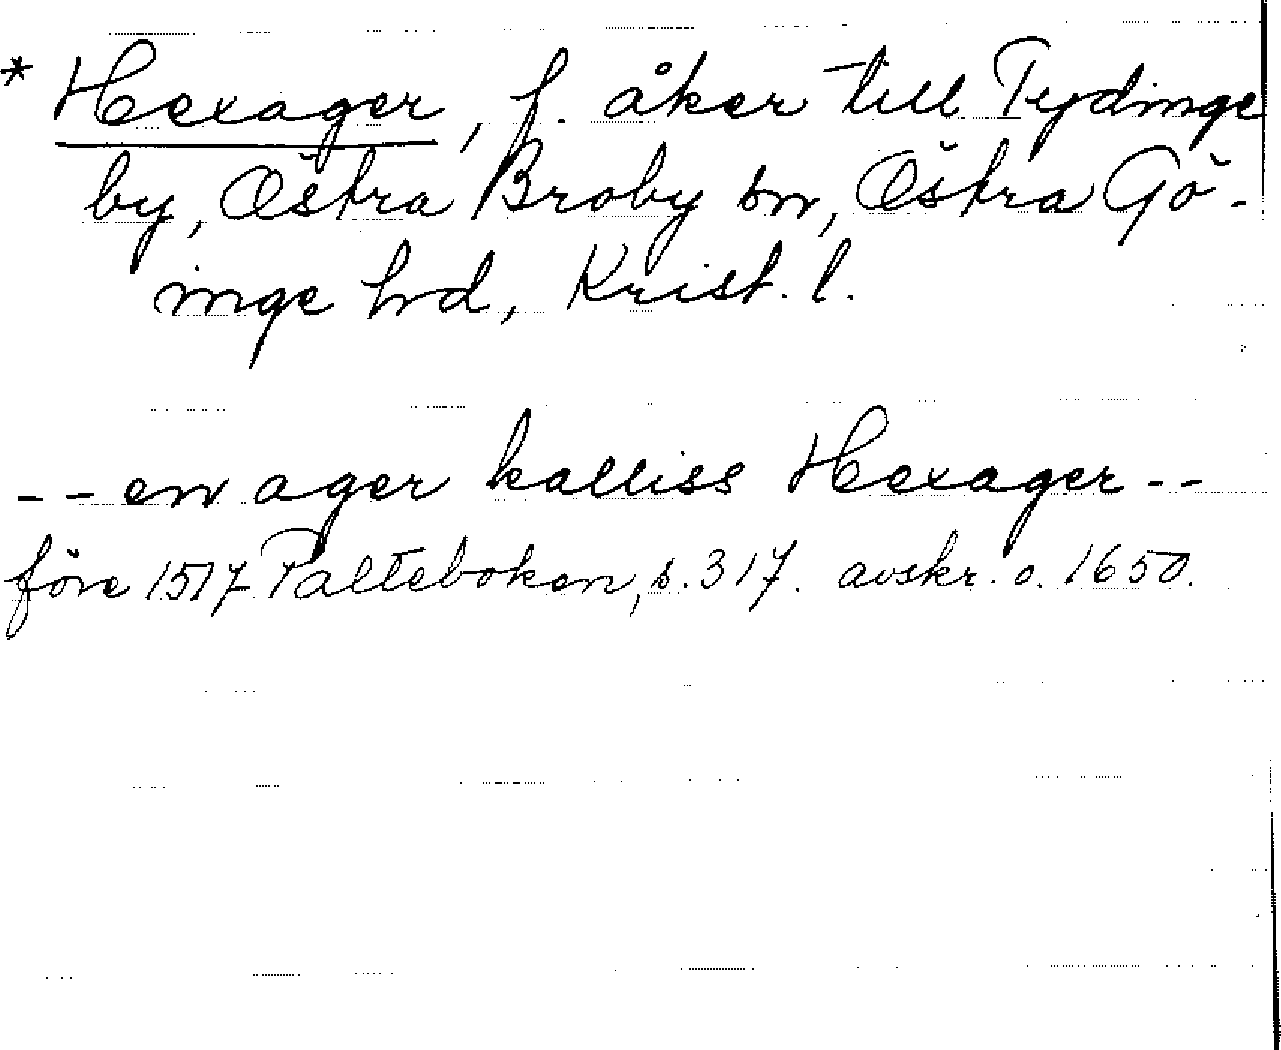 * Hexager, f. åker till Tydinge
by, Östra Broby sn, Östra Gö-
inge hd, Krist. l.
- - en ager kalliss Hexager - -
före 1517 Palteboken, s. 317. avskr. o. 1650.